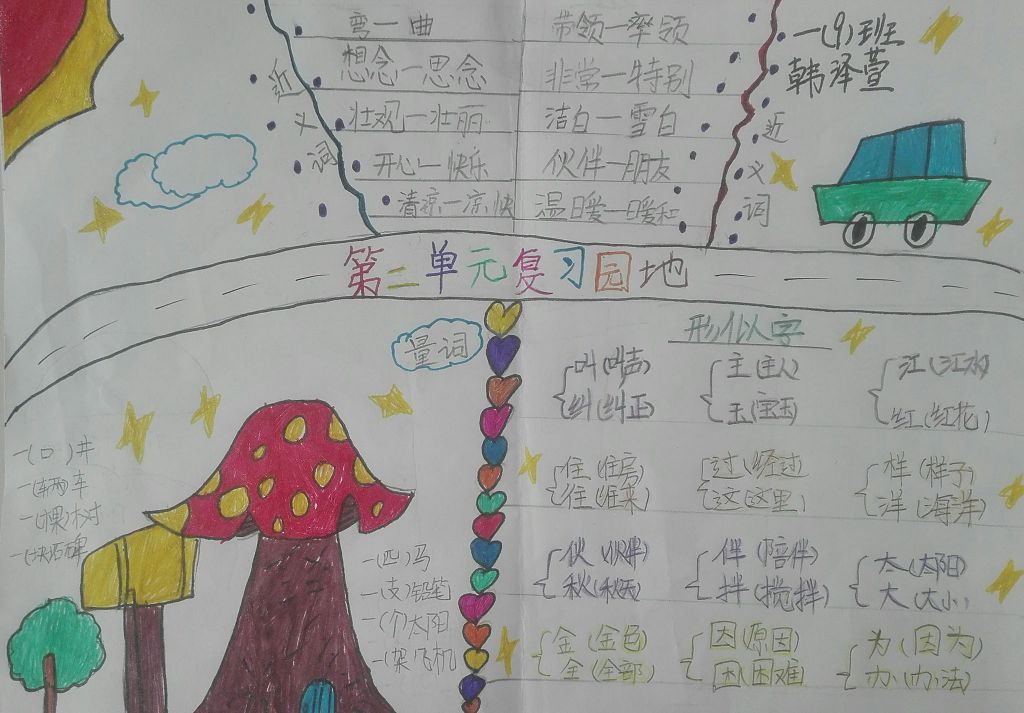 弯一曲
带领一率领
想念一思念
非常一特别
壮观一壮丽
洁白一雪白
开心一快乐
伙伴一朋友
清凉一凉快
温暖一暖和
近义词
近义词
一(9)班
韩泽萱
第二单元复习园地
量词
一(口)井
一(辆)车
一(棵)树
一(块)石碑
一(匹)马
一(支)铅笔
一(个)太阳
一(架)飞机
形似字
叫(叫声) 主(主人) 江(江水)
纠(纠正) 玉(宝玉) 红(红花)
住(住房) 过(经过) 样(样子)
往(往来) 这(这里) 洋(海洋)
伙(伙伴) 伴(陪伴) 太(太阳)
秋(秋天) 拌(搅拌) 大(大小)
金(金色) 因(原因) 为(因为)
全(全部) 困(困难) 办(办法)